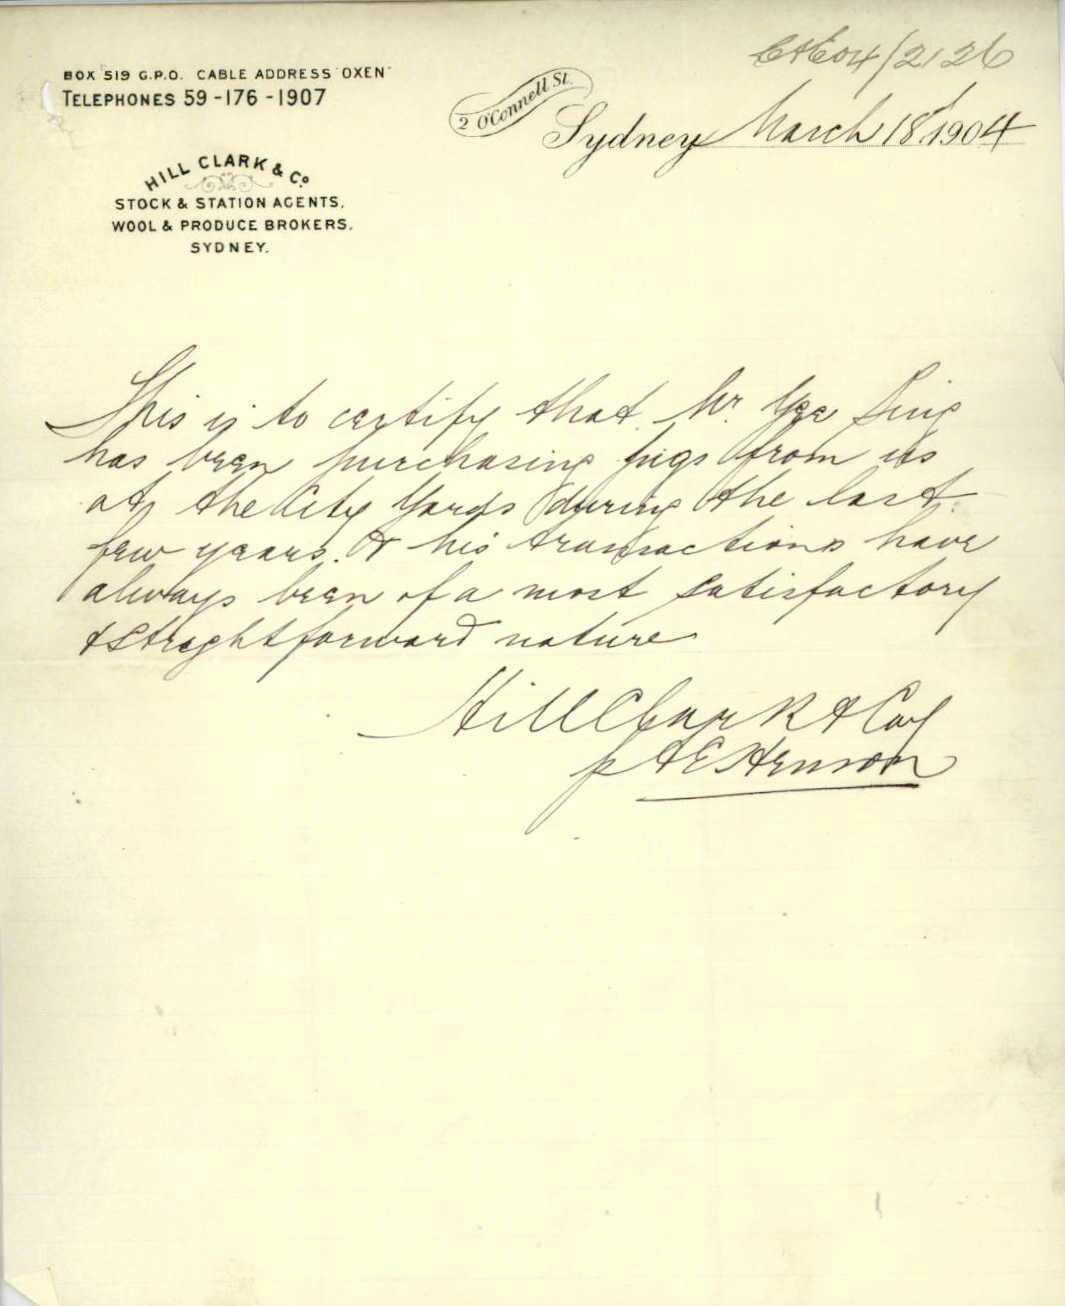 C&E 04/2126
BOX 519 G.P.O. CABLE ADDRESS "OXEN"
TELEPHONES 59-176-1907
2 O'Connell St.
Sydney March 18th 1904
HILL CLARK & Co
STOCK & STATION AGENTS,
WOOL & PRODUCE BROKERS,
SYDNEY.
This is to certify that Mr. Yee Sing
has been purchasing pigs from us
at the City Yards during the last
few years. & his transactions have
always been of a most satisfactory
& straghtforward nature
Hill Clark & Coy
p A E Henson